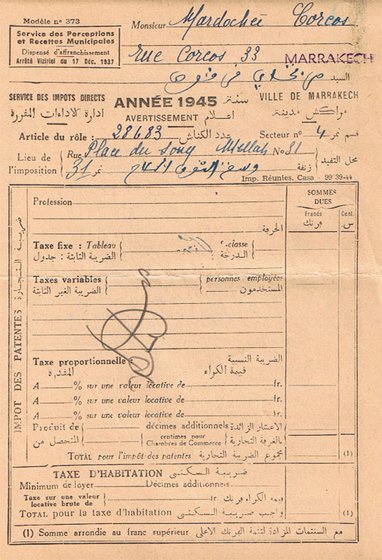 Modèle n° 373
Service des Perceptions
et Recettes Municipales
Dispensé d'affranchissement
Arrêté Viziriel du 17 Déc. 1937
Monsieur Mardochée Corcos
rue Corcos 33
MARRAKECH
السيد
SERVICE DES IMPOTS DIRECTS
ANNÉE 1945 سنة
VILLE DE MARRAKECH
ادارة كلاداءات المقررة
AVERTISSEMENT
اعلام
مراكش مدينة
Article du rôle : 28683 عدد الكناش
Secteur n° 4 قسم نمرة
Lieu de l'imposition
Rue Place du Souq Mellah N° 31
محل التنفيذ
زنقة
Imp. Réunies. Casa 99-39-44
IMPOT DES PATENTES
ضريبة التجارية
SOMMES DUES
Francs
Cent.
فرنك
س
Profession
الحرفة
Taxe fixe : Tableau classe
الضريبة الثابتة : جدول الدرجة
Taxes variables personnes employées
الضريبة الغير الثابتة المستخدمون
Taxe proportionnelle : الضريبة النسبية
المقدرة قيمة الكراء
A % sur une valeur locative de fr.
A % sur une valeur locative de fr.
A % sur une valeur locative de fr.
Produit de décimes additionnels الاعشار الزائدة
المتحصل من centimes pour Chambres de Commerce بالغرفة التجارية
TOTAL pour l'impôt des patentes مجموع الضريبة التجارية (1)
TAXE D'HABITATION ضريبة السكنى
Minimum de loyer Décimes additionnels
Taxe sur une valeur locative brute de fr. قيمة الكراء فرنك
TOTAL pour la taxe d'habitation واجب ضريبة السكنى (1)
(1) Somme arrondie au franc supérieur